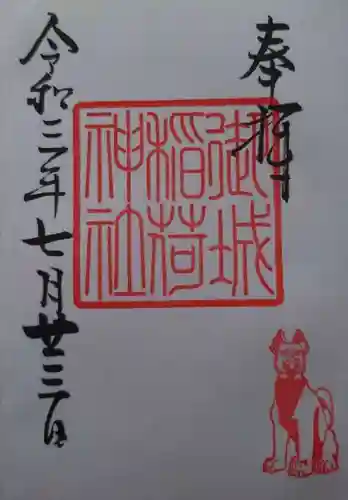 奉拝
御城
稲荷
神社
令和三年七月廿三日